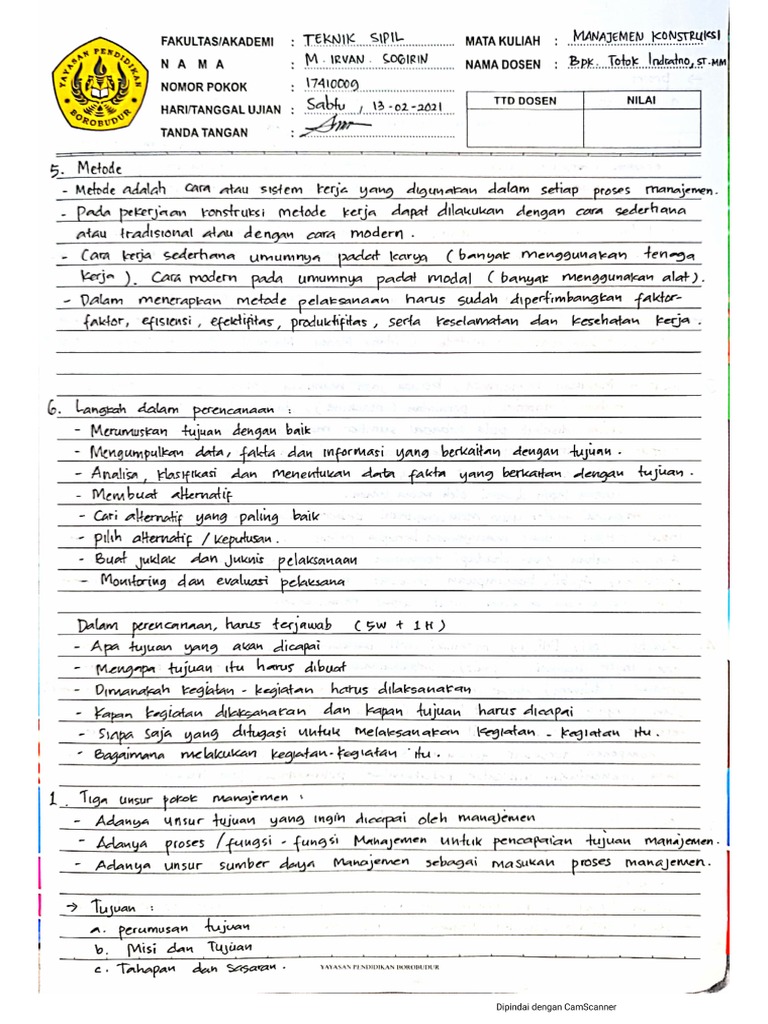 YAYASAN PENDIDIKAN
BOROBUDUR
FAKULTAS/AKADEMI : TEKNIK SIPIL
N A M A : M. IRVAN SOGIRIN
NOMOR POKOK : 17410009
HARI/TANGGAL UJIAN : Sabtu, 13-02-2021
TANDA TANGAN :
MATA KULIAH : MANAJEMEN KONSTRUKSI
NAMA DOSEN : Bpk. Totok Indratno, ST. MM
TTD DOSEN NILAI
5. Metode
- Metode adalah cara atau sistem kerja yang digunakan dalam setiap proses manajemen.
- Pada pekerjaan konstruksi metode kerja dapat dilakukan dengan cara sederhana
atau tradisional atau dengan cara modern.
- Cara kerja sederhana umumnya padat karya (banyak menggunakan tenaga
kerja). Cara modern pada umumnya padat modal (banyak menggunakan alat).
- Dalam menerapkan metode pelaksanaan harus sudah dipertimbangkan faktor-
faktor, efisiensi, efektifitas, produktifitas, serta keselamatan dan kesehatan kerja.
6. Langkah dalam perencanaan :
- Merumuskan tujuan dengan baik
- Mengumpulkan data, fakta dan informasi yang berkaitan dengan tujuan.
- Analisa, klasifikasi dan menentukan data fakta yang berkaitan dengan tujuan.
- Membuat alternatif
- Cari alternatif yang paling baik
- pilih alternatif / keputusan.
- Buat juklak dan juknis pelaksanaan
- Monitoring dan evaluasi pelaksana
Dalam perencanaan, harus terjawab (5W + 1H)
- Apa tujuan yang akan dicapai
- Mengapa tujuan itu harus dibuat
- Dimanakah kegiatan - kegiatan harus dilaksanakan
- Kapan kegiatan dilaksanakan dan kapan tujuan harus dicapai
- Siapa saja yang ditugasi untuk melaksanakan kegiatan - kegiatan itu.
- Bagaimana melakukan kegiatan-kegiatan itu.
1. Tiga unsur pokok manajemen :
- Adanya unsur tujuan yang ingin dicapai oleh manajemen
- Adanya proses / fungsi - fungsi Manajemen untuk pencapaian tujuan manajemen.
- Adanya unsur sumber daya Manajemen sebagai masukan proses manajemen.
→ Tujuan :
a. perumusan tujuan
b. Misi dan Tujuan
c. Tahapan dan sasaran.
YAYASAN PENDIDIKAN BOROBUDUR
Dipindai dengan CamScanner